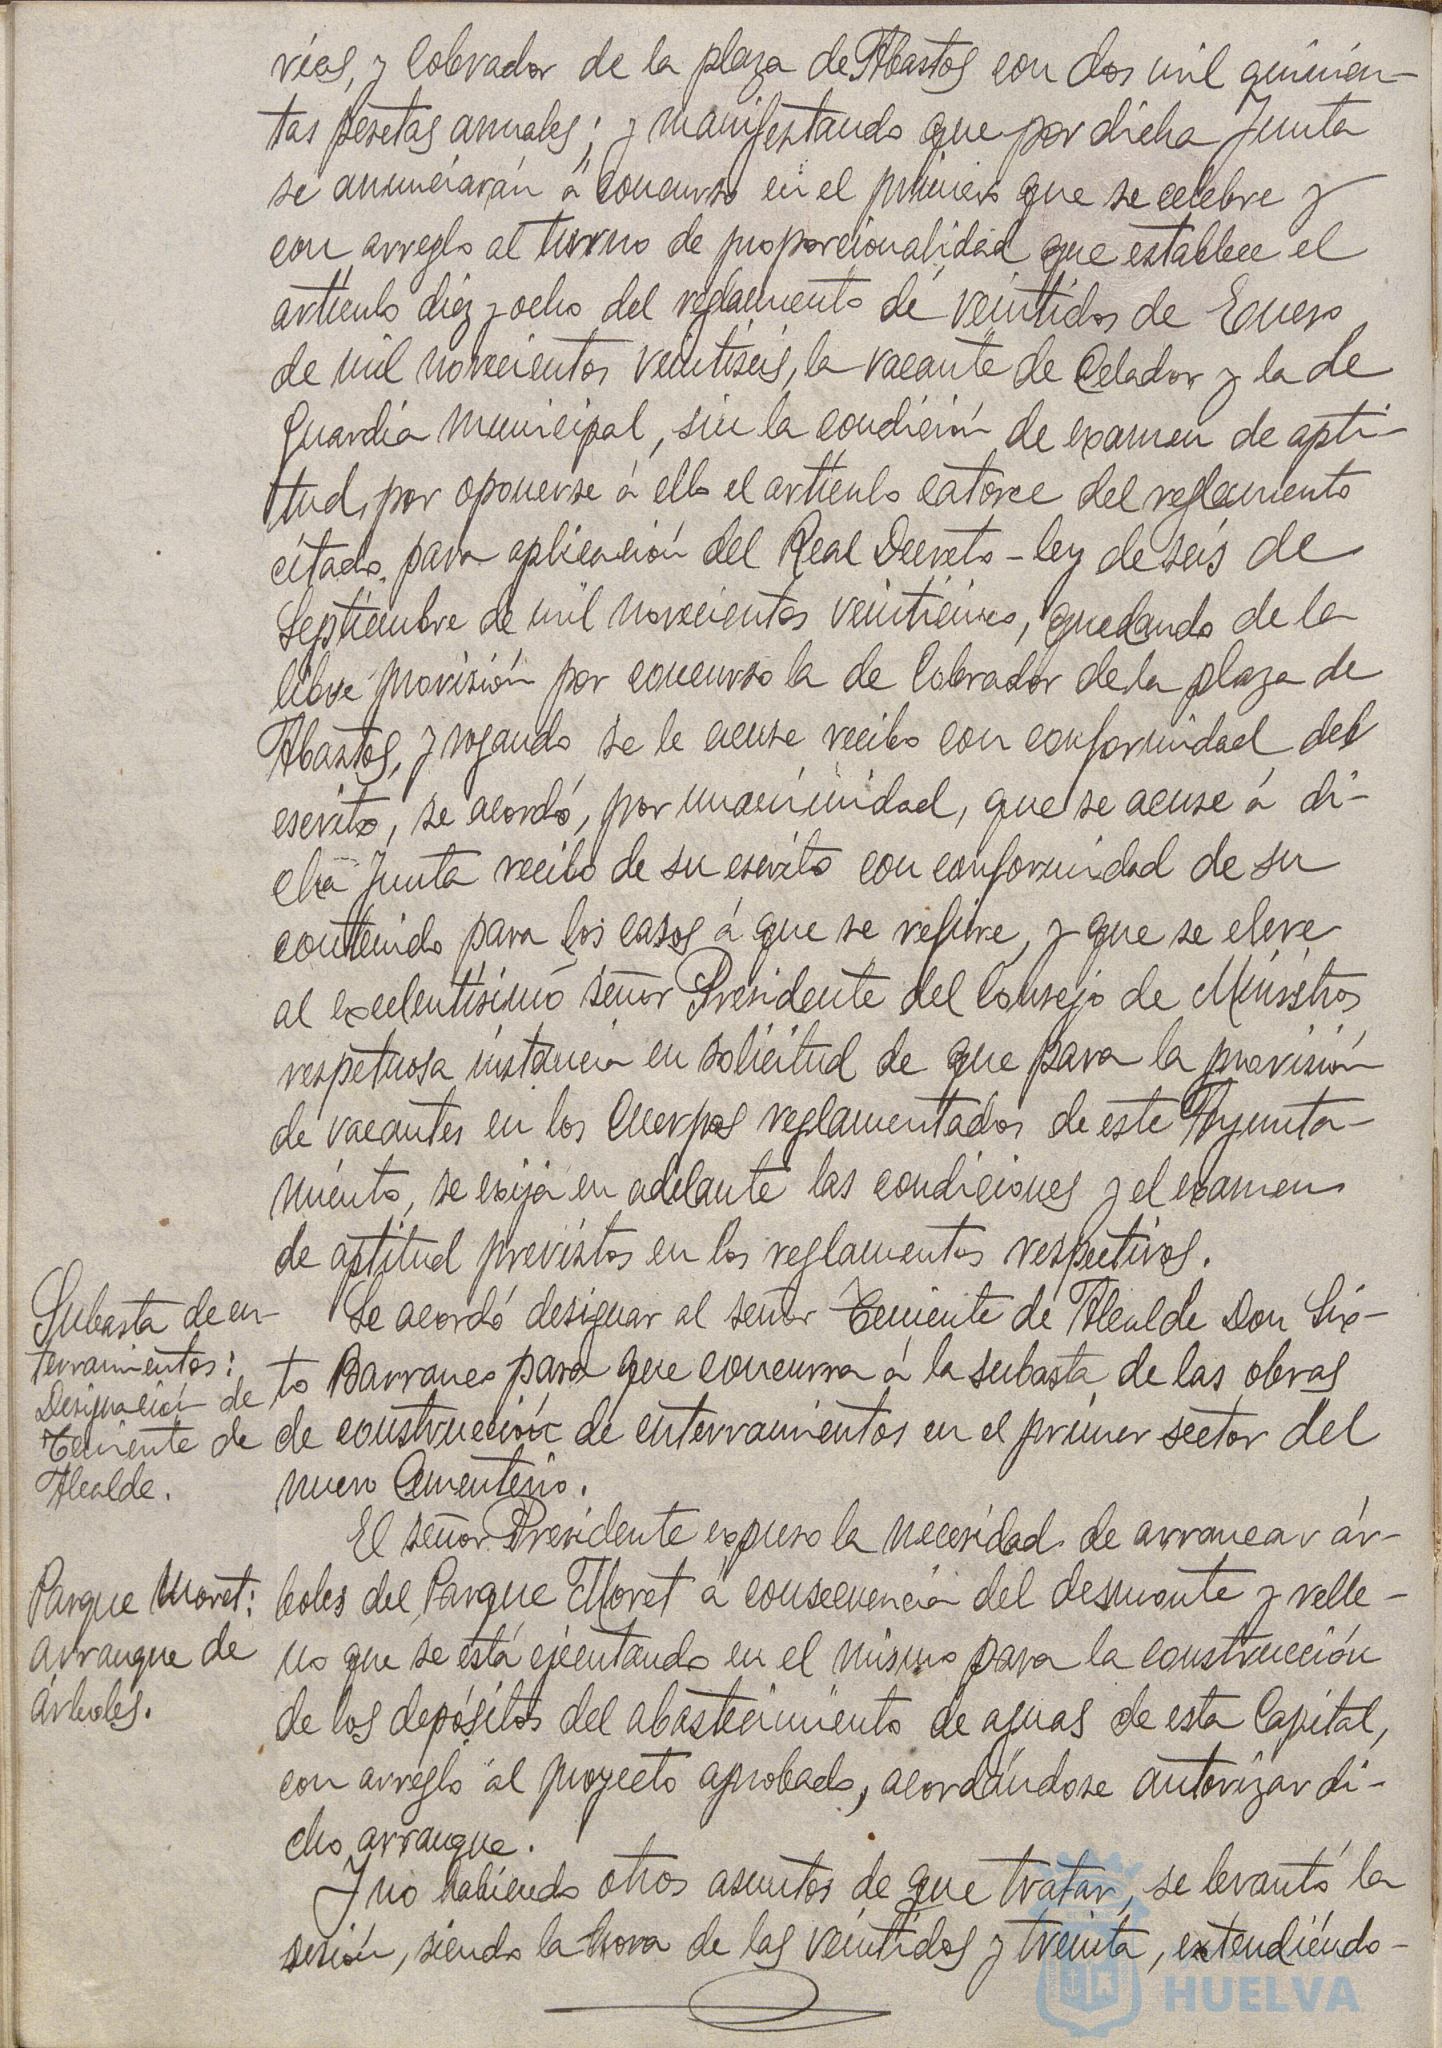 rías, y Cobrador de la plaza de Abastos con dos mil quinien-
tas pesetas anuales; y manifestando que por dicha Junta
se anunciarán á concurso en el primero que se celebre y
con arreglo al turno de proporcionalidad que establece el
artículo diez y ocho del reglamento de veintidos de Enero
de mil novecientos veintiseis, la vacante de Celador y la de
Guardia municipal, sin la condición de examen de apti-
tud, por oponerse á ello el artículo catorce del reglamento
citado, para aplicación del Real Decreto-ley de seis de
Septiembre de mil novecientos veinticinco, quedando de la
libre provisión por concurso la de Cobrador de la plaza de
Abastos, y rogando se le acuse recibo con conformidad del
escrito, se acordó, por unanimidad, que se acuse á di-
cha Junta recibo de su escrito con conformidad de su
contenido para los casos á que se refiere, y que se eleve
al excelentísimo señor Presidente del Consejo de Ministros
respetuosa instancia en solicitud de que para la provisión
de vacantes en los Cuerpos reglamentados de este Ayunta-
miento, se exija en adelante las condiciones y el examen
de aptitud previstos en los reglamentos respectivos.
Subasta de en-
terramientos:
Designación de
Teniente de
Alcalde.
Se acordó designar al señor Teniente de Alcalde Don Six-
to Barranco para que concurra á la subasta de las obras
de construcción de enterramientos en el primer sector del
nuevo Cementerio.
Parque Moret:
arranque de
árboles.
El señor Presidente expuso la necesidad de arrancar ár-
boles del Parque Moret á consecuencia del desmonte y relle-
no que se está ejecutando en el mismo para la construcción
de los depósitos del abastecimiento de aguas de esta Capital,
con arreglo al proyecto aprobado, acordándose autorizar di-
cho arranque.
Y no habiendo otros asuntos de que tratar, se levantó la
sesión, siendo la hora de las veintidos y treinta, extendiéndo-
HUELVA